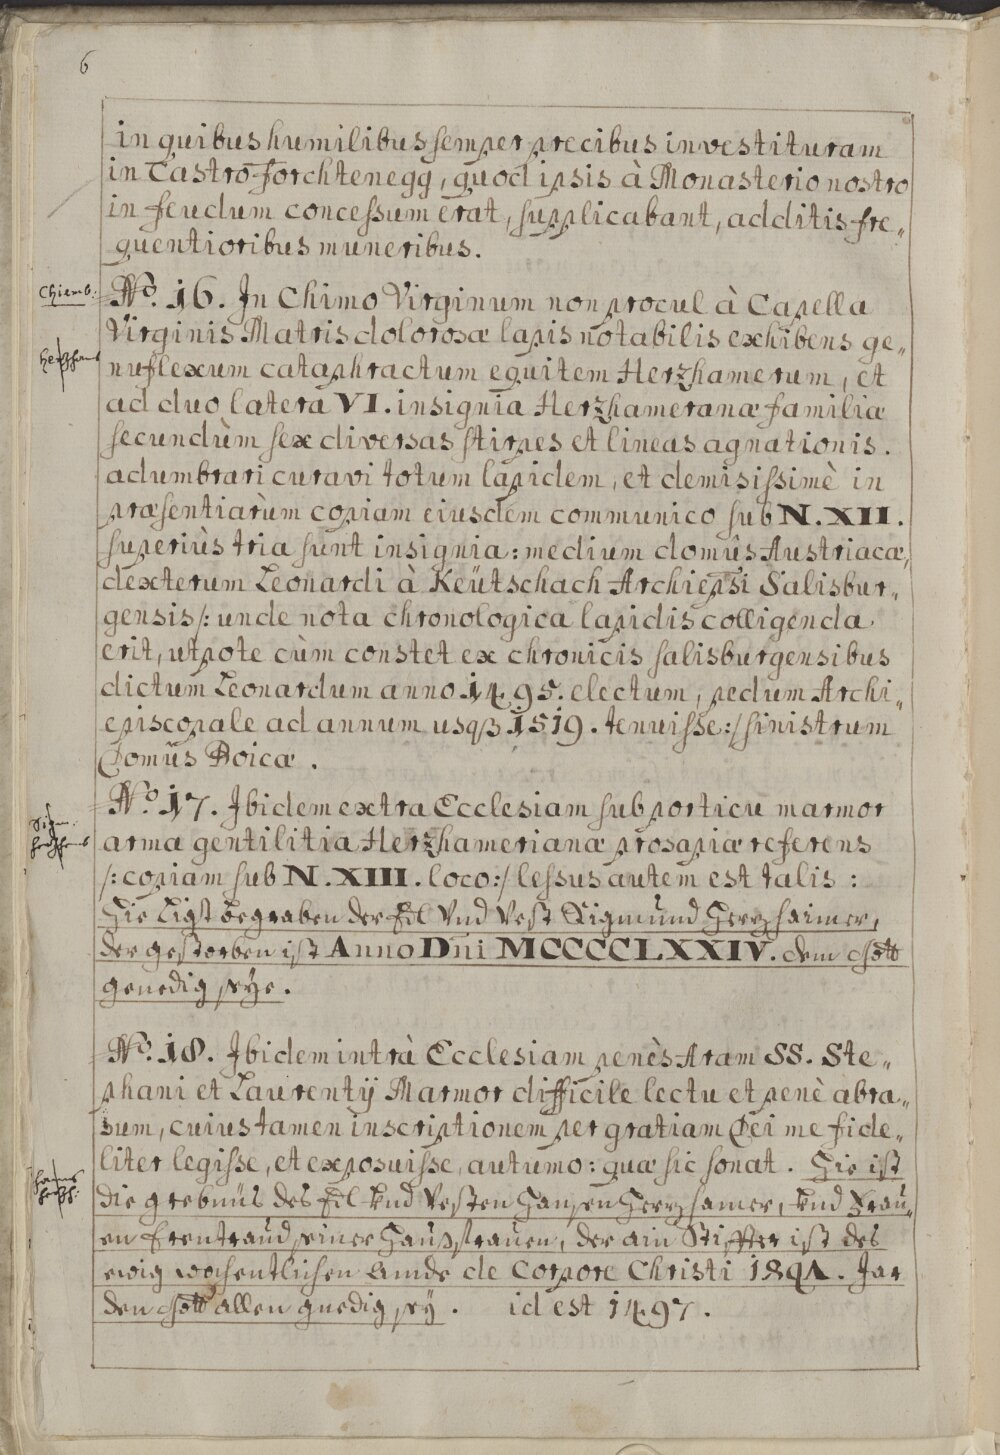 6
in quibus humilibus semper precibus investituram
in Castro Forchtenegg, quod ipsis à Monasterio nostro
in feudum concessum erat, supplicabant, additis fre„
quentioribus muneribus.
Chiemb:
No. 16. In Chimo Virginum non procul à Capella
Virginis Matris dolorosæ lapis notabilis exhibens ge„
nuflexum cataphractum equitem Herzhamerum, et
ad duo latera VI. insignia Herzhameranæ familiæ
secundùm sex diversas stirpes et lineas agnationis.
adumbrari curavi totum lapidem, et demisissimè in
præsentiarùm copiam eiusdem communico sub N. XII.
superiùs tria sunt insignia: medium domûs Austriacæ,
dexterum Leonardi à Keütschach Archiepsi Salisbur„
gensis /: unde nota chronologica lapidis colligenda
erit, utpote cùm constet ex chronicis salisburgensibus
dictum Leonardum anno 1495. electum, pedum Archi„
episcopale ad annum usqȝ 1519. tenuisse :/ sinistrum
Domûs Boicæ.
No. 17. Ibidem extra Ecclesiam sub porticu marmor
arma gentilitia Herzhamerianæ prosapiæ referens
/: copiam sub N. XIII. loco :/ lessus autem est talis :
Hie Ligt begraben der Edl Vnd Vest Sigmund Herrzhaimer,
der gestorben ist Anno Dni MCCCCLXXIV. dem Gott
genedig seye.
No. 18. Ibidem intrà Ecclesiam penès Aram SS. Ste„
phani et Laurentÿ Marmor difficile lectu et penè abra„
sum, cuius tamen inscriptionem per gratiam Dei me fide„
liter legisse, et exposuisse, autumo: quæ sic sonat. Hie ist
die grebnüs des Edl Vnd Vesten Hansen Herrzhamer, Vnd Frau„
en Erentraud seiner Hausfrauen, der ain Stiffter ist des
ewig wochentlichen Ambs de Corpore Christi 1891. Jar
den Gott allen gnedig sey. id est 1497.